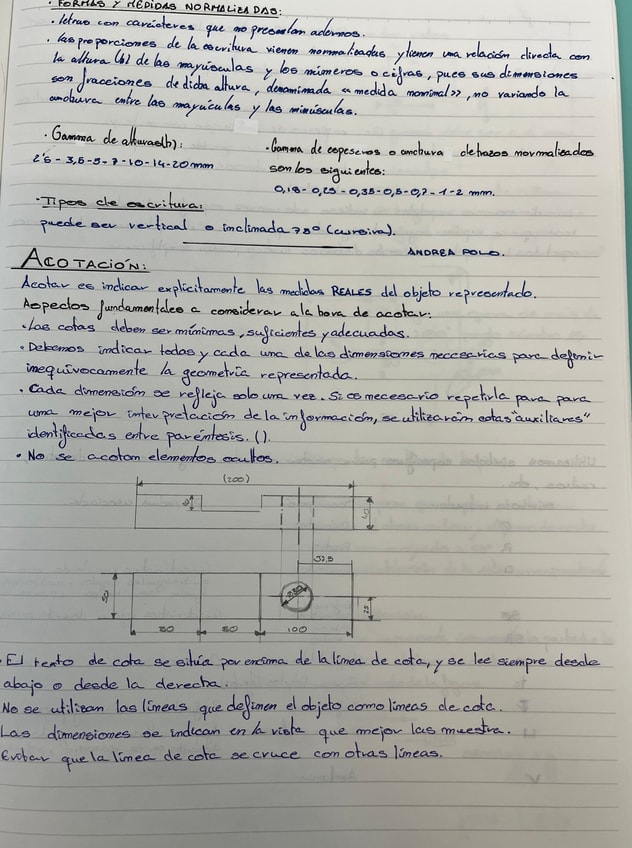 · FORMAS Y MEDIDAS NORMALIZADAS:
· letras con carácteres que no presentan adornos.
· Las proporciones de la escritura vienen normalizadas y tienen una relación directa con
la altura (h) de las mayúsculas y los números o cifras, pues sus dimensiones
son fracciones de dicha altura, denominada «medida nominal», no variando la
anchura entre las mayúculas y las minúsculas.
· Gamma de alturas(h):
2'5 - 3,5 - 5 - 7 - 10 - 14 - 20 mm
· Gamma de espesores o anchura de trazos normalizados
son los siguientes:
0,18 - 0,25 - 0,35 - 0,5 - 0,7 - 1 - 2 mm.
· Tipos de escritura:
puede ser vertical o inclinada 75º (cursiva).
ANDREA POLO.
ACOTACIÓN:
Acotar es indicar explícitamente las medidas REALES del objeto representado.
Aspectos fundamentales a considerar a la hora de acotar:
· Las cotas deben ser mínimas, suficientes y adecuadas.
· Debemos indicar todas y cada una de las dimensiones necesarias para definir
inequívocamente la geometría representada.
· Cada dimensión se refleja solo una vez. Si es necesario repetirla para para
una mejor interpretación de la información, se utilizarán cotas "auxiliares"
identificadas entre paréntesis. ().
· No se acotan elementos ocultos.
(200)
40
25
100
· El texto de cota se sitúa por encima de la línea de cota, y se lee siempre desde
abajo o desde la derecha.
No se utilizan las líneas que definen el objeto como líneas de cota.
Las dimensiones se indican en la vista que mejor las muestra.
Evitar que la línea de cota se cruce con otras líneas.